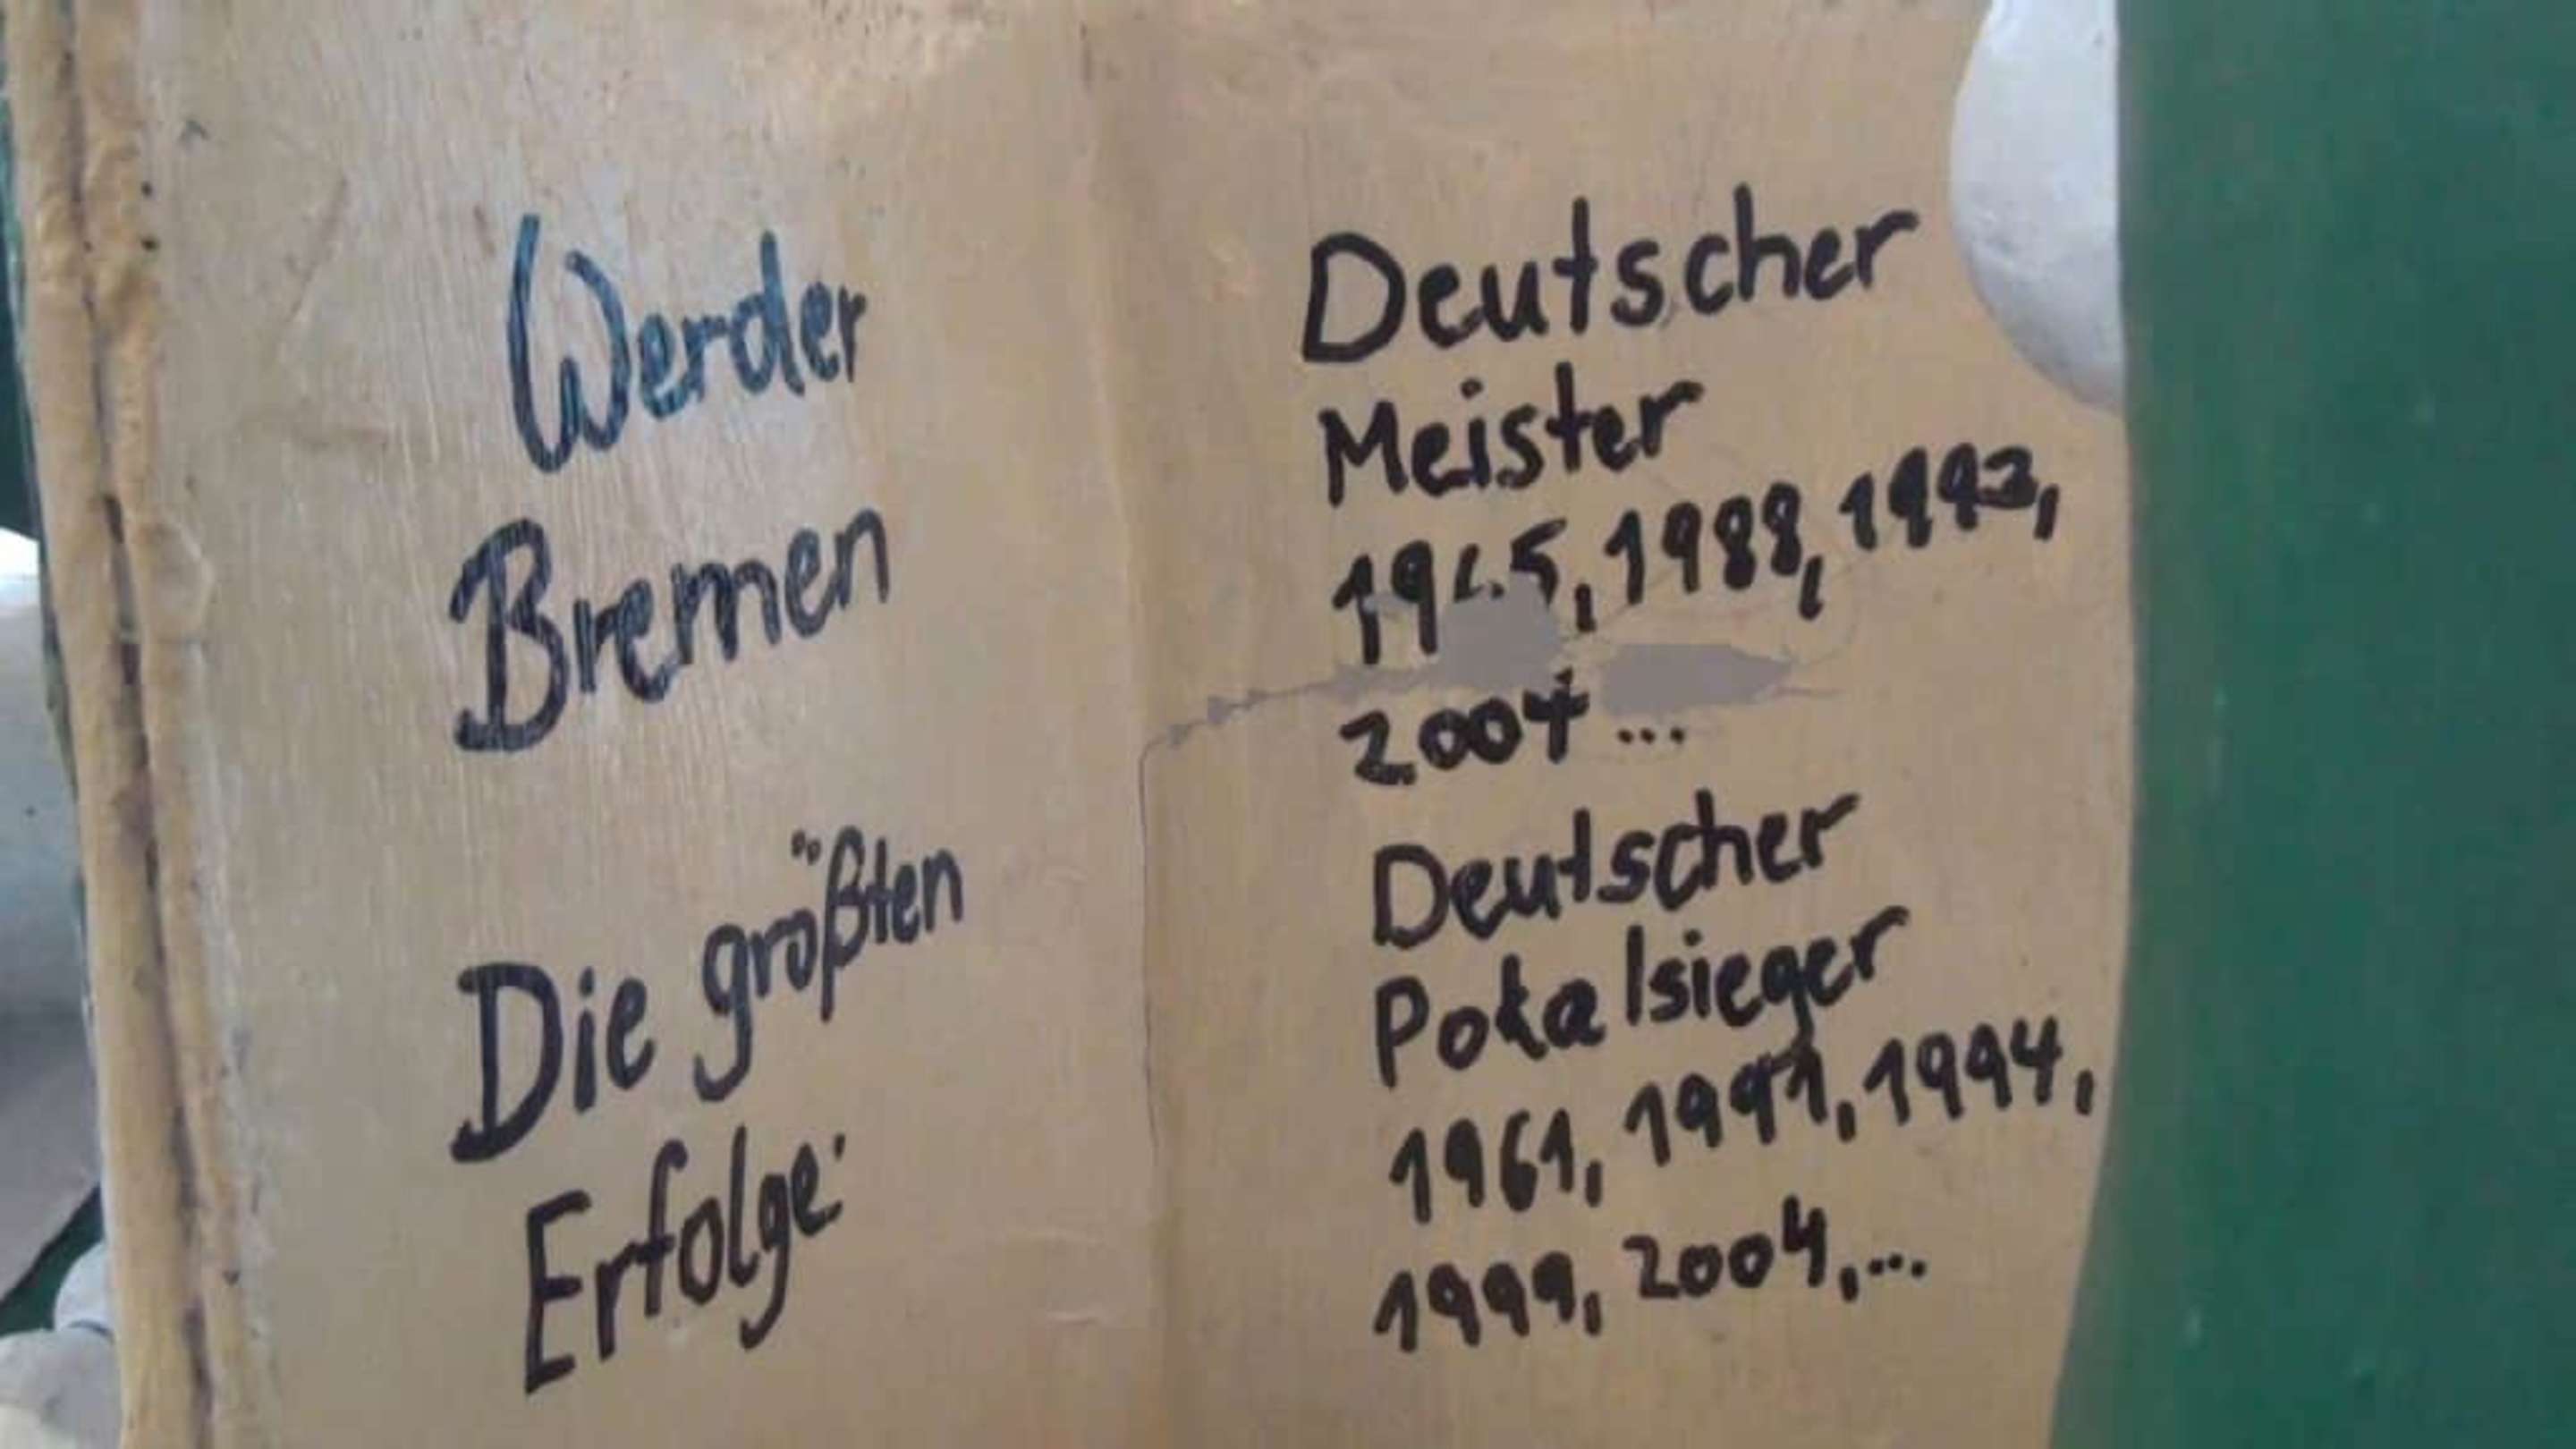 Werder
Bremen
Die größten
Erfolge:
Deutscher
Meister
1965, 1988, 1993,
2004 ...
Deutscher
Pokalsieger
1961, 1991, 1994,
1999, 2004, ...